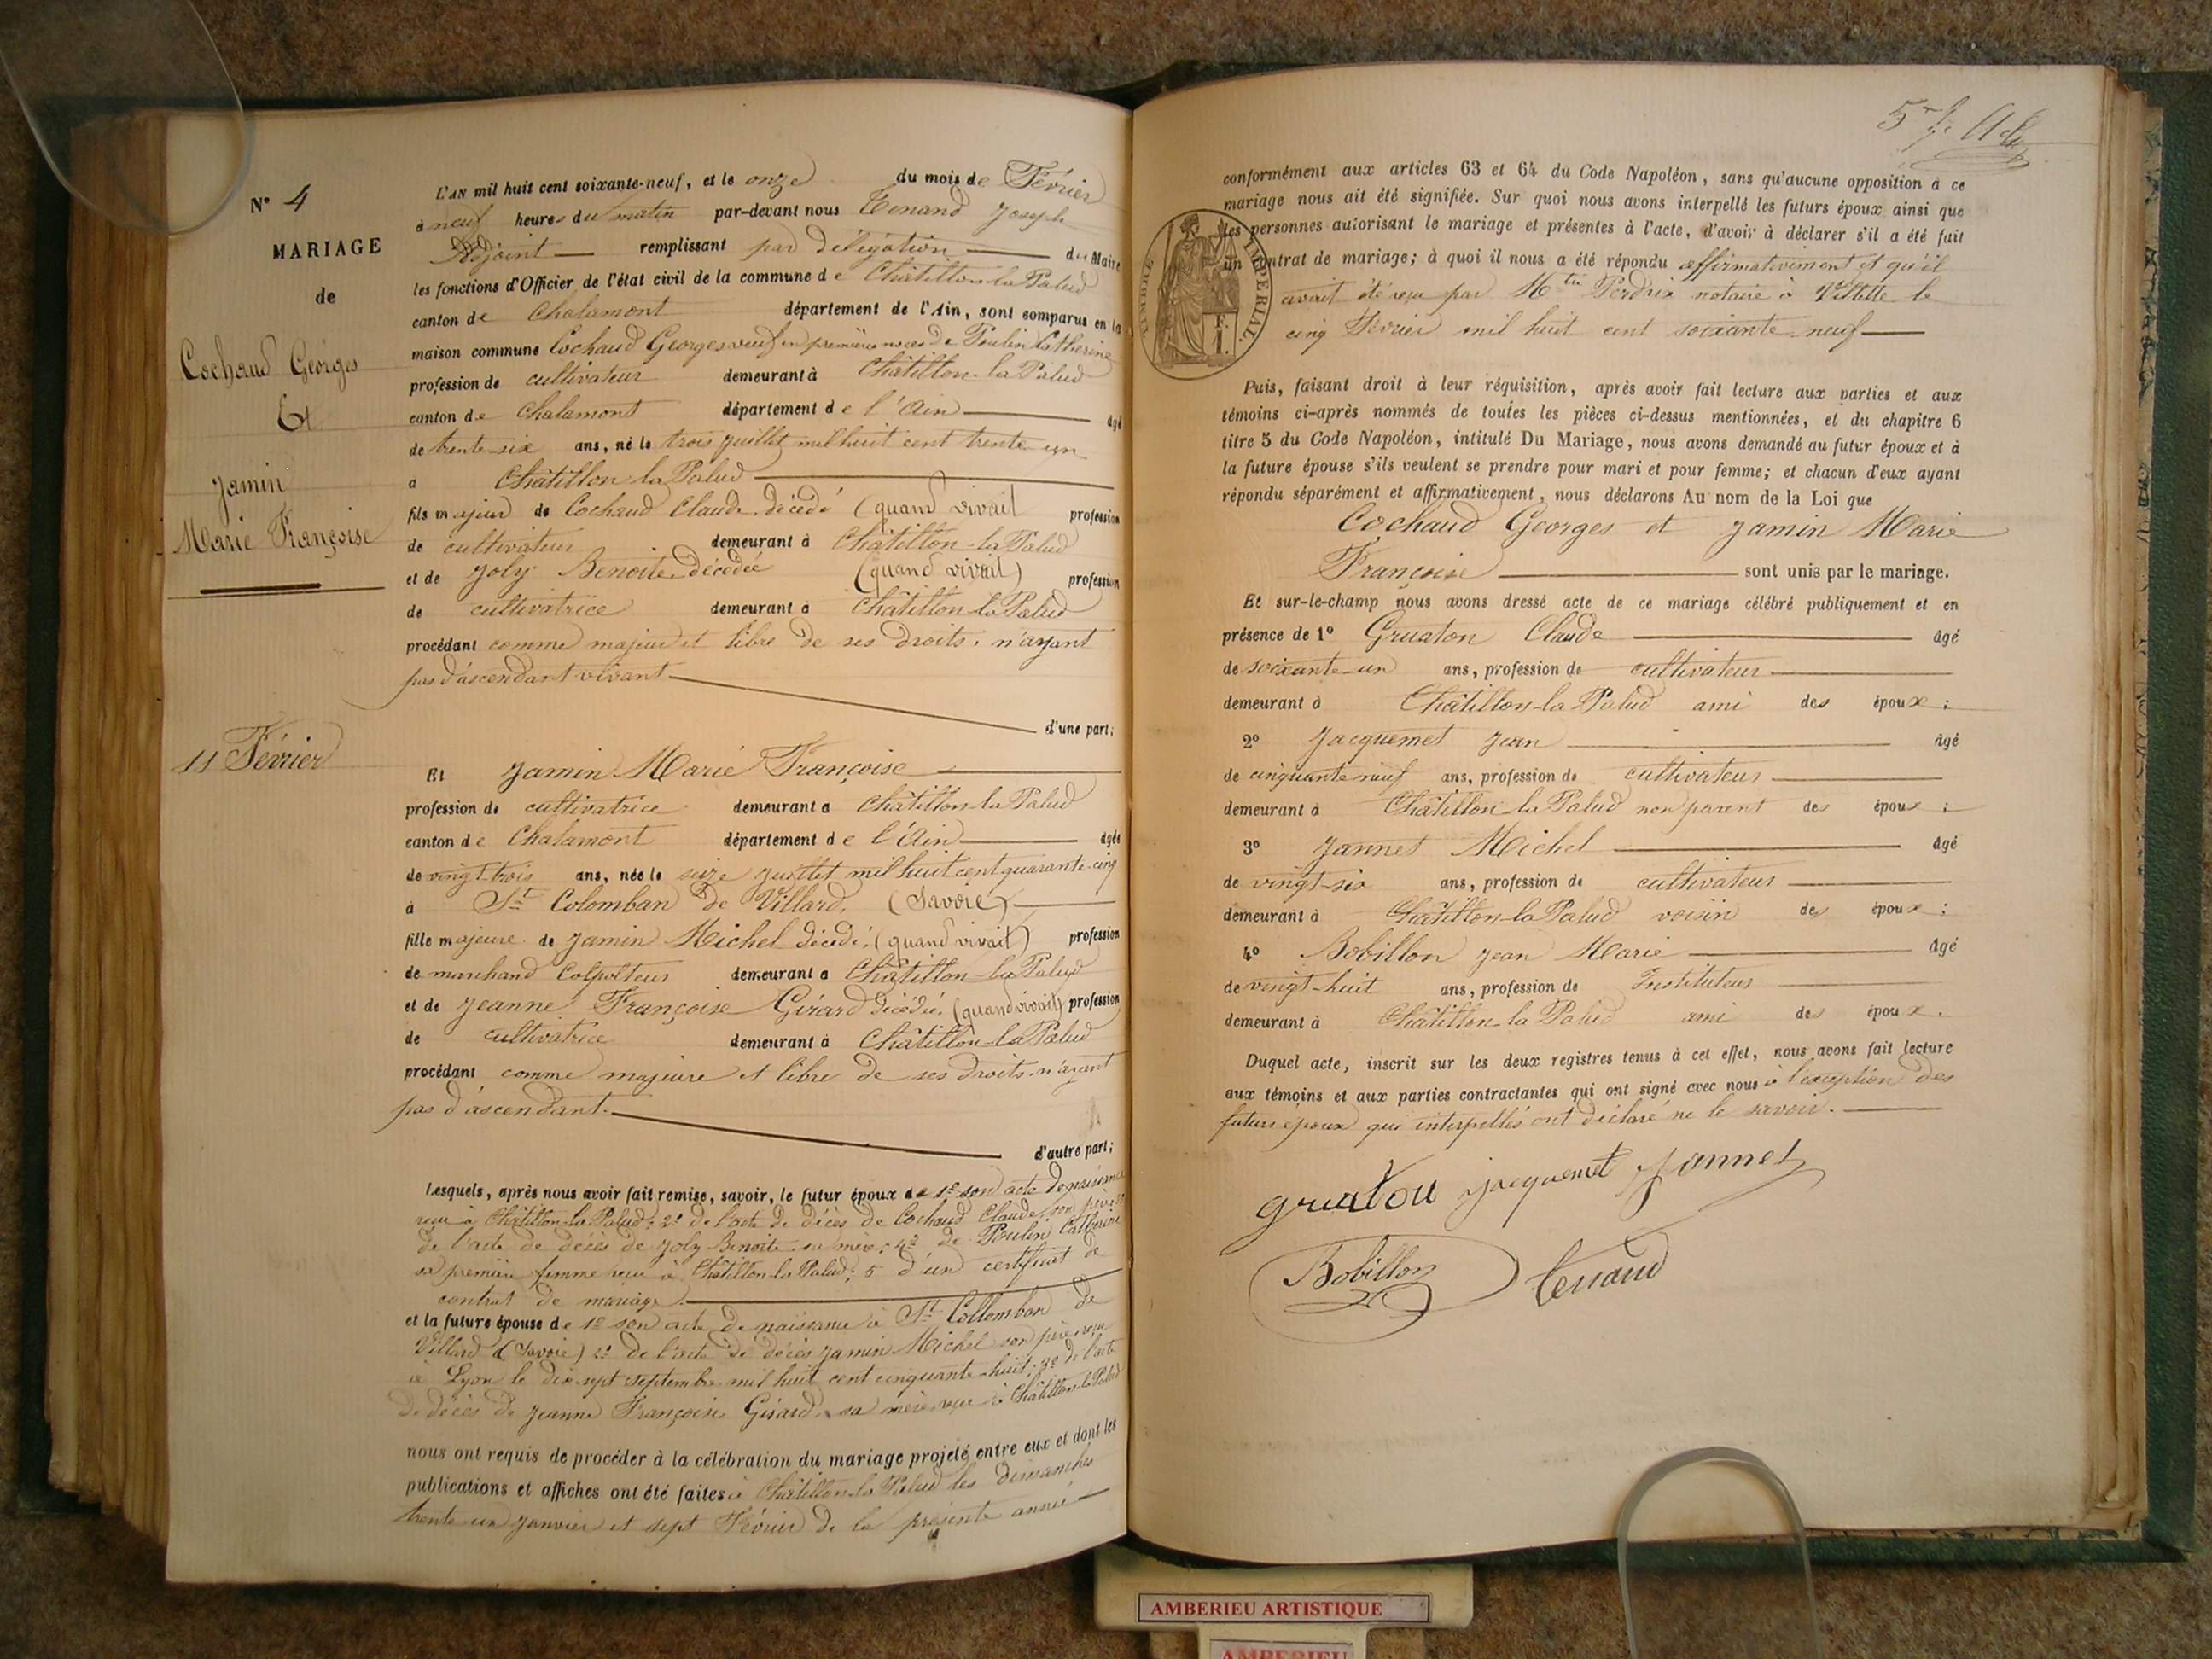 N° 4
MARIAGE
de
Cochaud Georges
Et
Jamin
Marie Françoise
11 Février
L'AN mil huit cent soixante-neuf, et le onze du mois de Février
à neuf heures du matin par-devant nous Tenand Joseph
Adjoint remplissant par délégation du Maire
les fonctions d'Officier de l'état civil de la commune de Châtillon-la-Palud
canton de Chalamont département de l'Ain, sont comparus en la
maison commune Cochaud Georges veuf en premières noces de Poulin Catherine
profession de cultivateur demeurant à Châtillon-la-Palud
canton de Chalamont département de l'Ain âgé
de trente-six ans, né le trois juillet mil huit cent trente-un
à Châtillon la Palud
fils majeur de Cochaud Claude décédé (quand vivait profession
de cultivateur demeurant à Châtillon-la Palud
et de Joly Benoite décédée (quand vivait) profession
de cultivatrice demeurant à Châtillon-la Palud
procédant comme majeur et libre de ses droits, n'ayant
pas d'ascendant vivant
d'une part;
Et Jamin Marie Françoise
profession de cultivatrice demeurant à Châtillon-la Palud
canton de Chalamont département de l'Ain âgée
de vingt-trois ans, née le seize juillet mil huit cent quarante-cinq
à St Colomban de Villard. (Savoie)
fille majeure de Jamin Michel décédé, (quand vivait) profession
de marchand Colpolteur demeurant à Châtillon-la Palud
et de Jeanne Françoise Girard décédée, (quand vivait) profession
de cultivatrice demeurant à Châtillon-la Palud
procédant comme majeure et libre de ses droits n'ayant
pas d'ascendant.
d'autre part;
Lesquels, après nous avoir fait remise, savoir, le futur époux de 1° son acte de naissance
reçu à Châtillon-la Palud; 2° de l'acte de décès de Cochaud Claude, son père
de l'acte de décès de Joly Benoite sa mère; 4° de Poulin Catherine
sa première femme reçu à Châtillon-la Palud; 5 d'un certificat de
contrat de mariage.
et la future épouse de 1° son acte de naissance à St Collomban de
Villard (Savoie) 2° de l'acte de décès Jamin Michel son père reçu
à Lyon le dix-sept septembre mil huit cent cinquante-huit; 3° de l'acte
de décès de Jeanne Françoise Girard, sa mère reçu à Châtillon-la Palud
nous ont requis de procéder à la célébration du mariage projeté entre eux et dont les
publications et affiches ont été faites à Châtillon-la Palud les dimanches
trente-un janvier et sept Février de la présente année
conformément aux articles 63 et 64 du Code Napoléon, sans qu'aucune opposition à ce
mariage nous ait été signifiée. Sur quoi nous avons interpellé les futurs époux ainsi que
les personnes autorisant le mariage et présentes à l'acte, d'avoir à déclarer s'il a été fait
un contrat de mariage; à quoi il nous a été répondu affirmativement et qu'il
avait été reçu par Perdrix notaire à Villette le
cinq Février mil huit cent soixante-neuf
TIMBRE IMPERIAL
Puis, faisant droit à leur réquisition, après avoir fait lecture aux parties et aux
témoins ci-après nommés de toutes les pièces ci-dessus mentionnées, et du chapitre 6
titre 5 du Code Napoléon, intitulé Du Mariage, nous avons demandé au futur époux et à
la future épouse s'ils veulent se prendre pour mari et pour femme; et chacun d'eux ayant
répondu séparément et affirmativement, nous déclarons Au nom de la Loi que
Cochaud Georges et Jamin Marie
Françoise sont unis par le mariage.
Et sur-le-champ nous avons dressé acte de ce mariage célébré publiquement et en
présence de 1° Gruaton Claude âgé
de soixante-un ans, profession de cultivateur
demeurant à Châtillon-la Palud ami des époux;
2° Jacquemet Jean âgé
de cinquante neuf ans, profession de cultivateur
demeurant à Châtillon-la Palud non parent des époux;
3° Jannet Michel âgé
de vingt-six ans, profession de cultivateur
demeurant à Châtillon-la Palud voisin des époux;
4° Bobillon Jean Marie âgé
de vingt-huit ans, profession de Instituteur
demeurant à Châtillon-la Palud ami des époux.
Duquel acte, inscrit sur les deux registres tenus à cet effet, nous avons fait lecture
aux témoins et aux parties contractantes qui ont signé avec nous à l'exception des
futurs époux qui interpellés ont déclaré ne le savoir.
gruatou jacquemet Jannet
Bobillon Tenand
AMBERIEU ARTISTIQUE
AMBERIEU